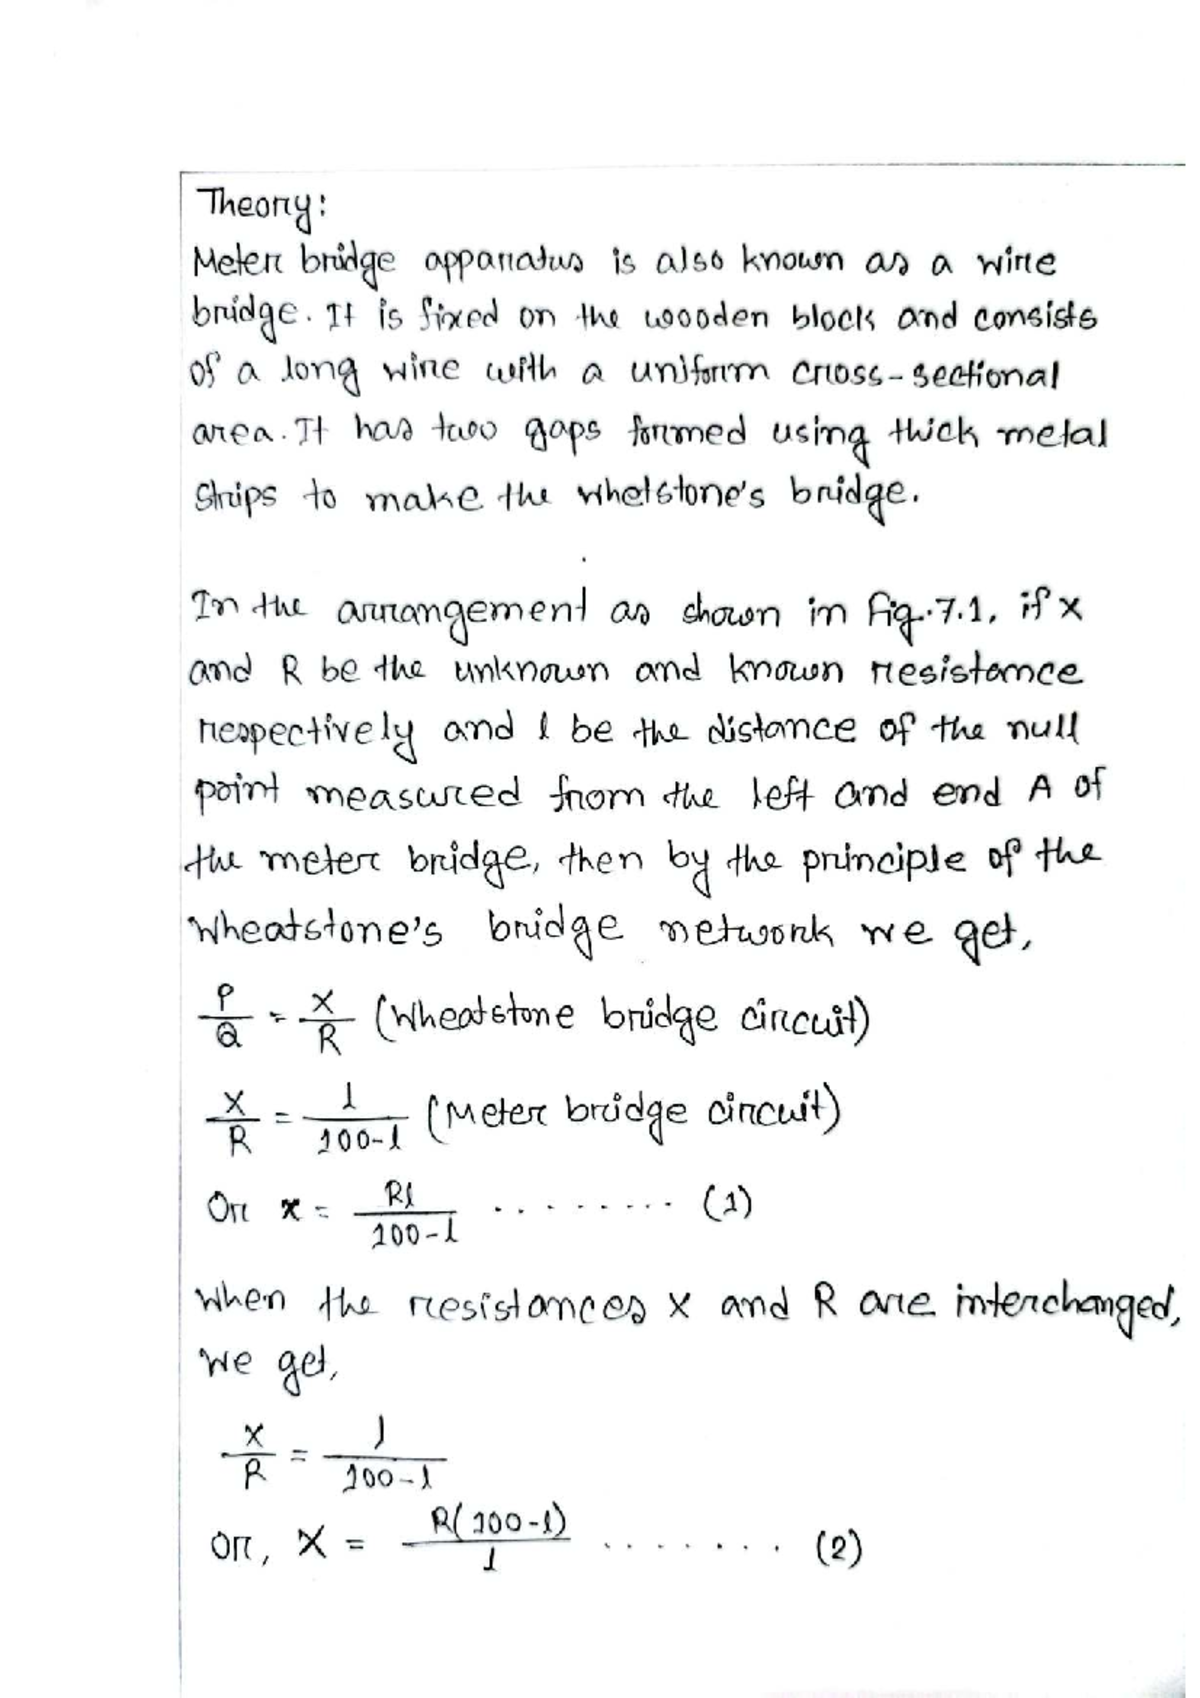 Theory:
Meter bridge apparatus is also known as a wire
bridge. It is fixed on the wooden block and consists
of a long wire with a uniform cross-sectional
area. It has two gaps formed using thick metal
strips to make the whetstone's bridge.
In the arrangement as shown in Fig.7.1, if x
and R be the unknown and known resistance
respectively and l be the distance of the null
point measured from the left and end A of
the meter bridge, then by the principle of the
Wheatstone's bridge network we get,
P/Q = X/R (Wheatstone bridge circuit)
X/R = l/100-l (Meter bridge circuit)
Or x = Rl/100-l ......... (1)
When the resistances X and R are interchanged,
we get,
X/R = l/100-l
or, X = R(100-l)/l ....... (2)